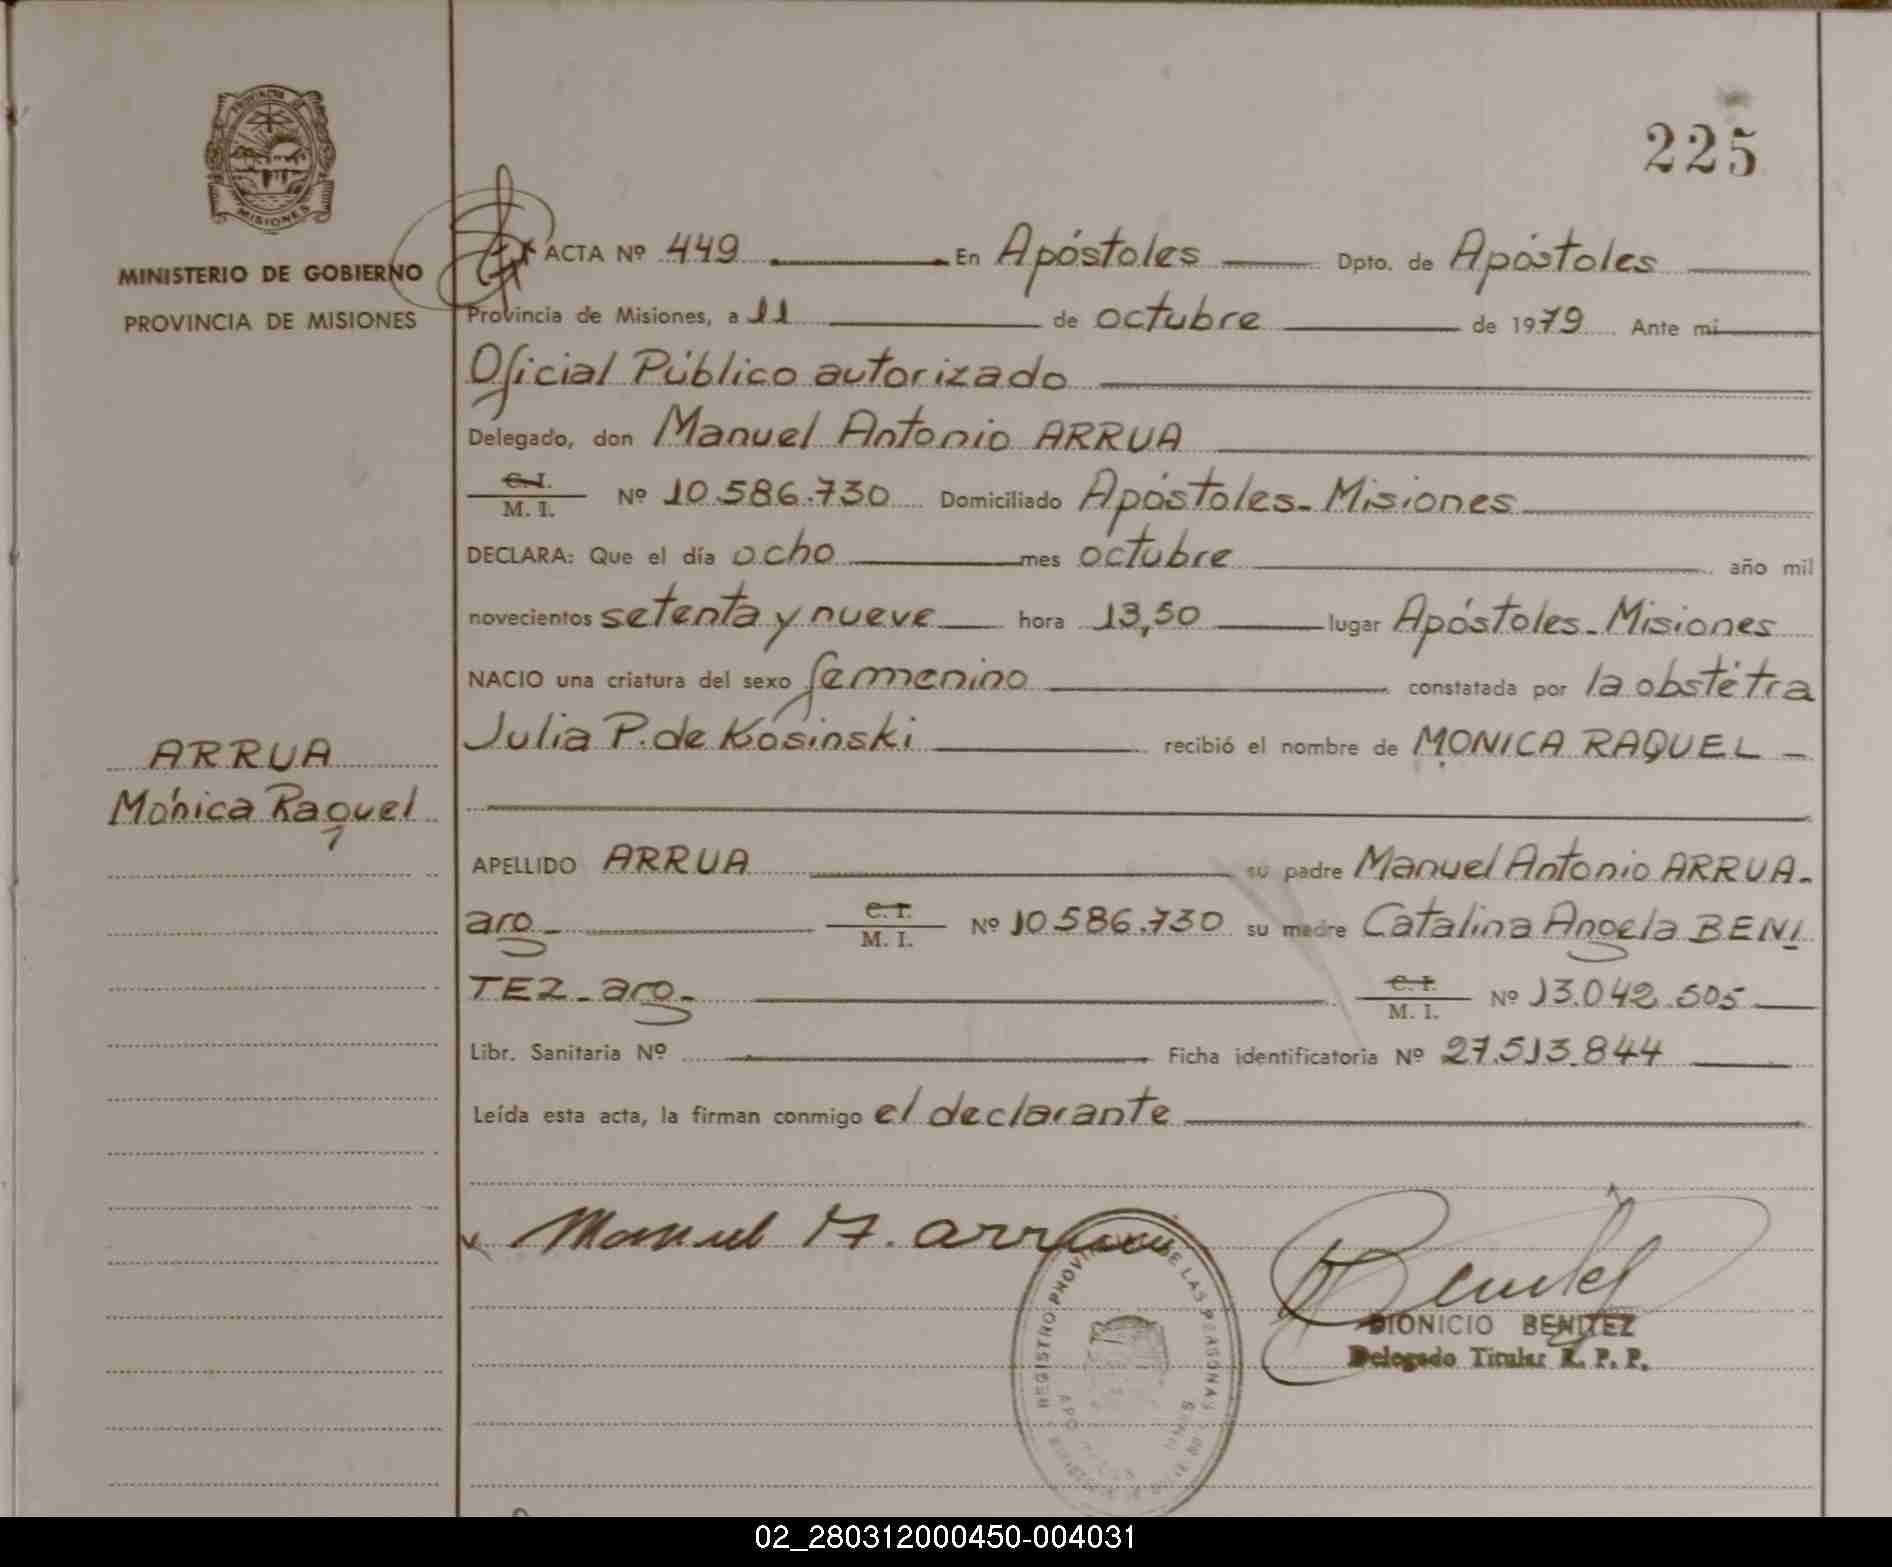 225
PROVINCIA DE
MISIONES
MINISTERIO DE GOBIERNO
PROVINCIA DE MISIONES
ARRUA
Mónica Raquel
ACTA Nº 449 En Apóstoles Dpto. de Apóstoles
Provincia de Misiones, a 11 de octubre de 1979 Ante mi
Oficial Público autorizado
Delegado, don Manuel Antonio ARRUA
C. I.
M. I. Nº 10.586.730 Domiciliado Apóstoles - Misiones
DECLARA: Que el día ocho mes octubre año mil
novecientos setenta y nueve hora 13,50 lugar Apóstoles - Misiones
NACIO una criatura del sexo femenino constatada por la obstétra
Julia P. de Kosinski recibió el nombre de MONICA RAQUEL -
APELLIDO ARRUA su padre Manuel Antonio ARRUA-
arg- C. I.
M. I. Nº 10.586.730 su madre Catalina Angela BENI
TEZ - arg- C. I.
M. I. Nº 13.042.505
Libr. Sanitaria Nº Ficha identificatoria Nº 27.513.844
Leída esta acta, la firman conmigo el declarante
Manuel A. Arrua
REGISTRO PROVINCIAL DE LAS PERSONAS
Benitez
DIONICIO BENITEZ
Delegado Titular R. P. P.
02_280312000450-004031